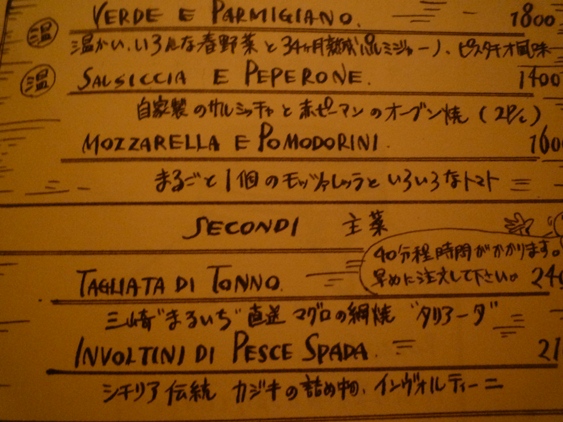 VERDE E PARMIGIANO. 1800
温 温かい、いろんな春野菜と34ヶ月熟成パルミジャーノ、ピスタチオ風味
温 SALSICCIA E PEPERONE. 1400
自家製のサルシッチャと赤ピーマンのオーブン焼 (2Pc)
MOZZARELLA E POMODORINI. 160
まるごと1個のモッツァレッラといろいろなトマト
SECONDI 主菜
40分程時間がかかります。
早めに注文して下さい。
TAGLIATA DI TONNO. 240
三崎"まるいち"直送 マグロの網焼 "タリアータ"
INVOLTINI DI PESCE SPADA. 21
シチリア伝統 カジキの詰め物、インヴォルティーニ